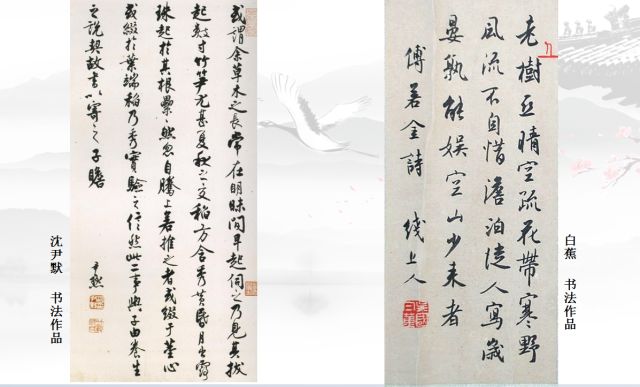 老樹亞晴空疏花帶寒野
風流不自惜澹泊從人寫歲
晏孰能娛空山少来者
傅若金詩 上人
白蕉 书法作品
或謂余草木之長常在明昧間早起伺之乃見其拔
起數寸竹筍尤甚夏秋之交稻方含秀黄昏月出露
珠起於其根纍纍然忽自騰上若推之者或綴于莖心
或綴於葉端稻乃秀實驗之信然此二事與子由養生
之說契故書以寄之子瞻
尹默
沈尹默 书法作品